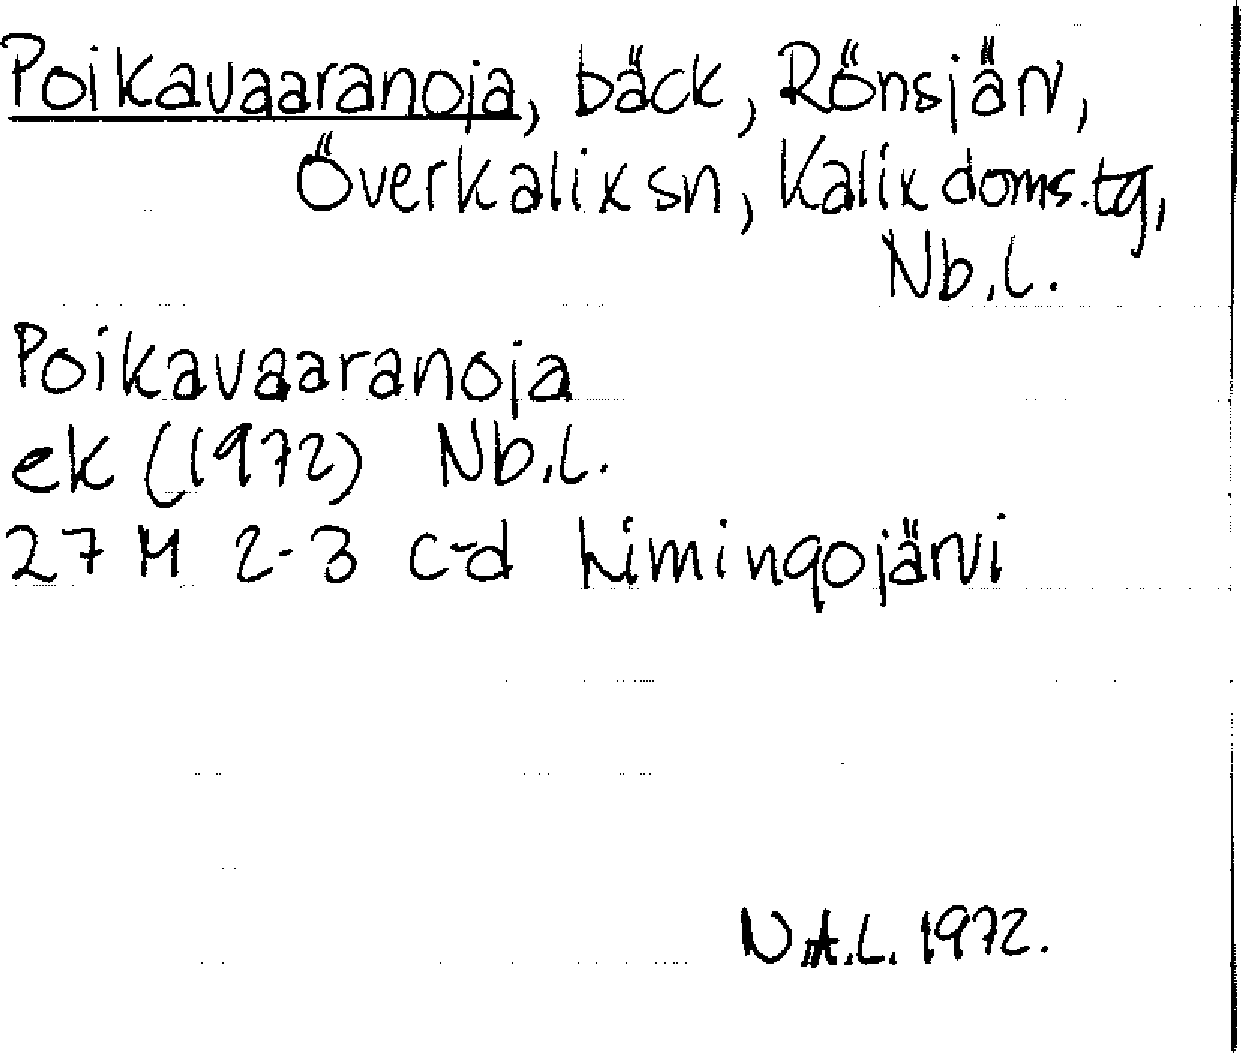 Poikavaaranoja, bäck, Rönsjärv,
Överkalix sn, Kalix doms.tg,
Nb.l.
Poikavaaranoja
ek (1972) Nb.l.
27 M 2-3 c-d Limingojärvi
N.A.L. 1972.